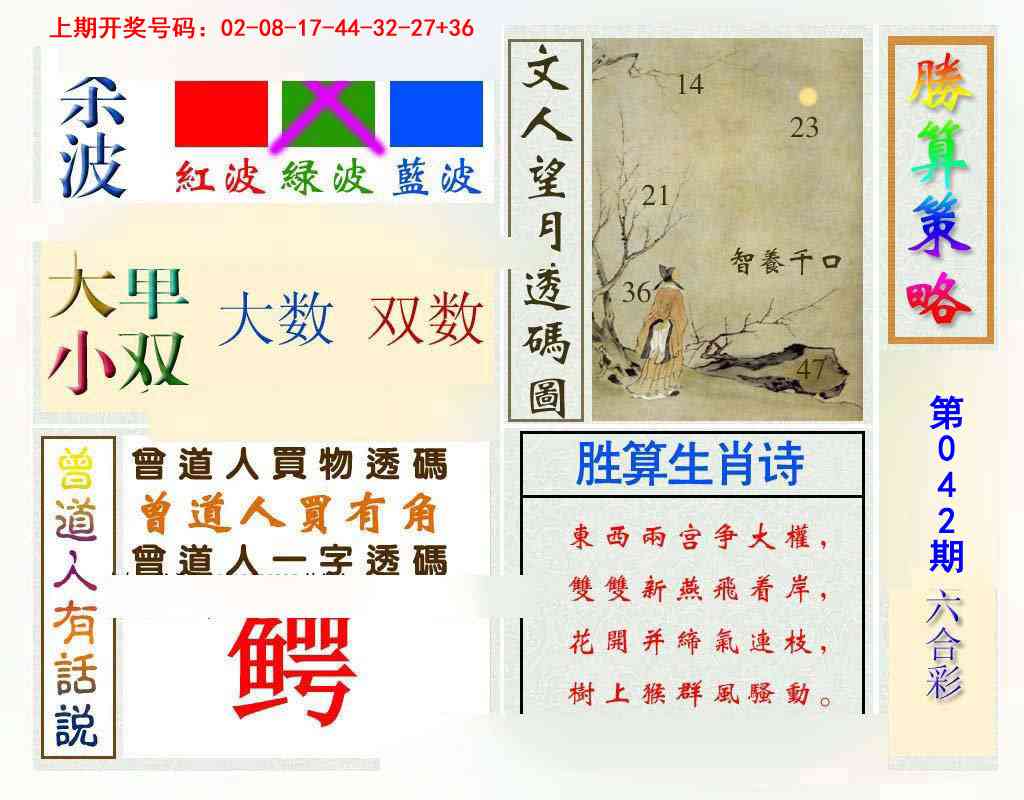 上期开奖号码：02-08-17-44-32-27+36
杀波
紅波 緑波 藍波
大小
甲双
大数 双数
文人望月透碼圖
14
23
21
智養千口
36
47
勝算策略
第042期
六合彩
曾道人有話説
曾道人買物透碼
曾道人買有角
曾道人一字透碼
鳄
胜算生肖诗
東西兩宫争大權，
雙雙新燕飛着岸，
花開并締氣連枝，
樹上猴群風騷動。